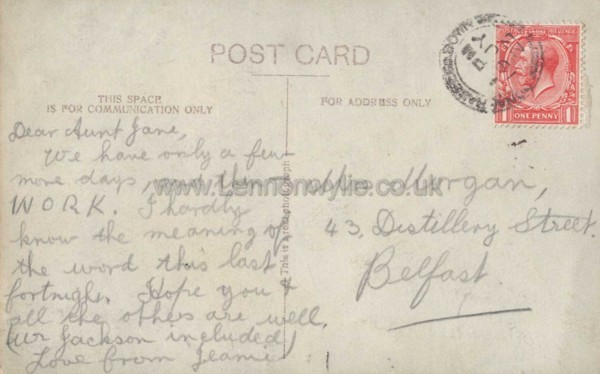 POST CARD
THIS SPACE
IS FOR COMMUNICATION ONLY
FOR ADDRESS ONLY
ONE PENNY
1 1
Dear Aunt Jane,
We have only a few
more days, and then
WORK. I hardly
know the meaning of
the word this last
fortnight. Hope you &
all the others are well,
(Mr Jackson included)
Love from Jeanie
This is a real photograph
Morgan,
43, Distillery Street.
Belfast.
www.Lennonwylie.co.uk